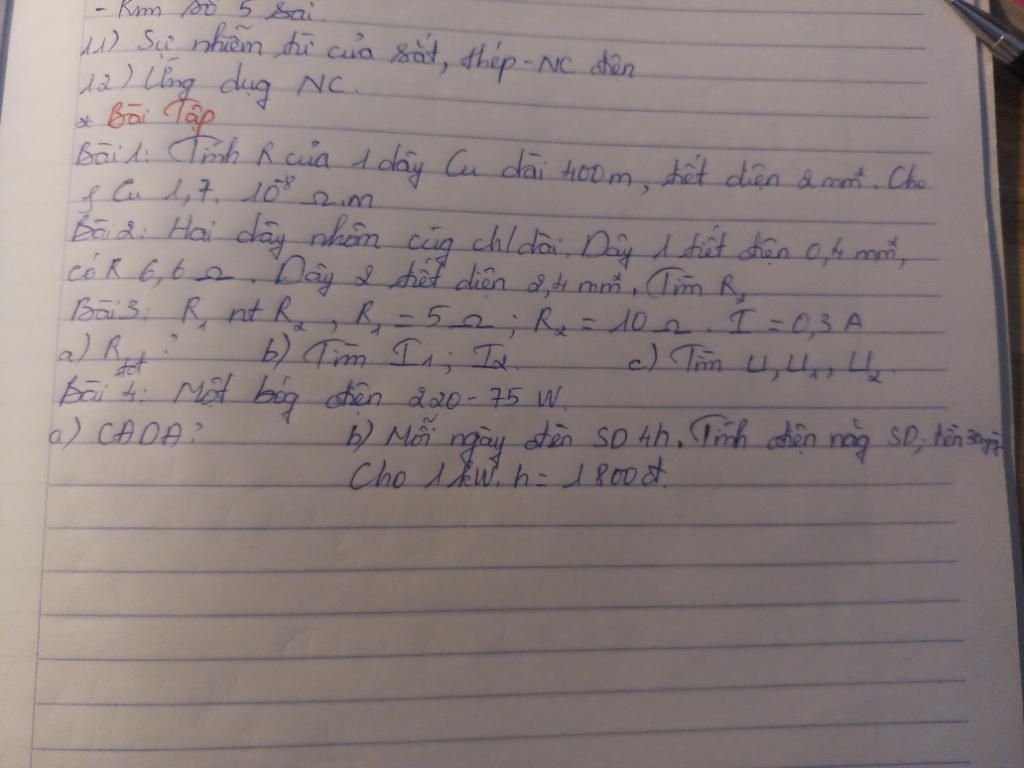 - Km số 5 sai.
11) Sự nhiễm từ của sắt, thép - NC điện
12) Ứng dụg NC.
* Bài Tập
Bài 1: Tính R của 1 dây Cu dài 400m, tiết diện 2 mm². Cho
ρ Cu 1,7. 10⁻⁸ Ω.m
Bài 2: Hai dây nhôm cùg chl dài. Dây 1 tiết diện 0,4 mm²,
có R 6,6 Ω. Dây 2 tiết diện 2,4 mm², Tìm R₂
Bài 3: R₁ nt R₂, R₁ = 5 Ω; R₂ = 10 Ω. I = 0,3 A
a) Rtđ? b) Tìm I₁; I₂. c) Tìm U, U₁, U₂.
Bài 4: Một bóg điện 220 - 75 W.
a) CAOA? b) Mỗi ngày đèn SD 4h. Tính điện năg SD, tiền 30 ngày
Cho 1 kW.h = 1800đ.